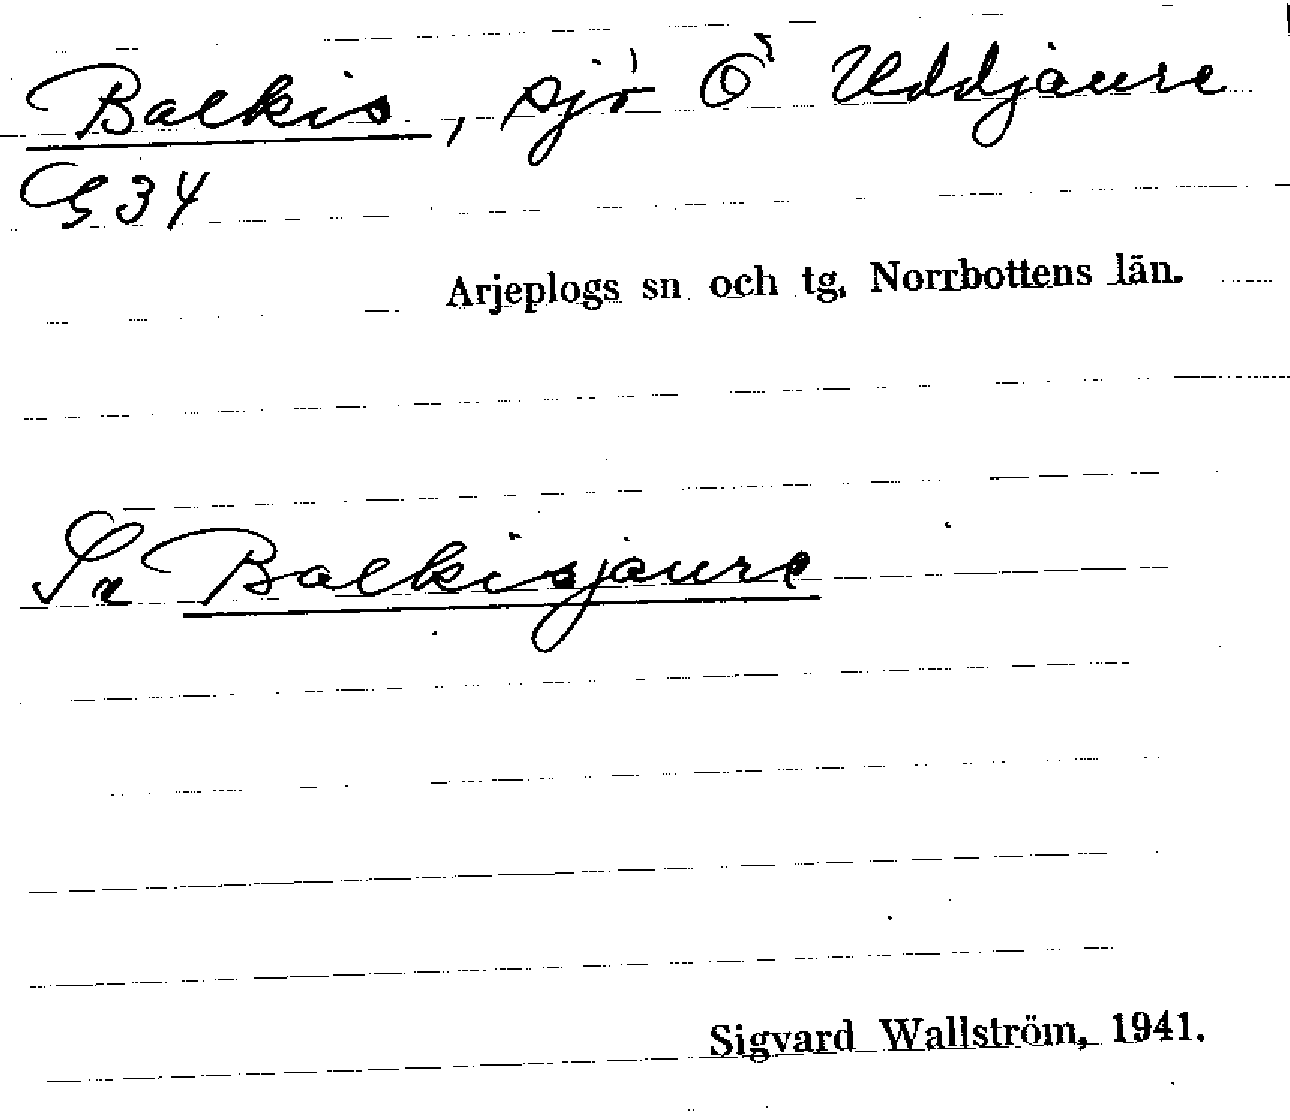 Balkis, sjö Ö Uddjaure
G34
Arjeplogs sn och tg, Norrbottens län.
Sn Balkisjaure
Sigvard Wallström, 1941.